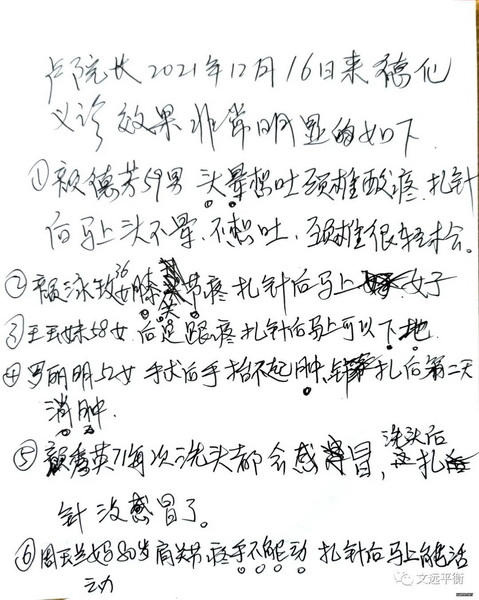 卢院长2021年12月16日来德化
义诊效果非常明显的如下
①颜德芳59男 头晕想吐颈椎酸疼.扎针
后马上头不晕.不想吐.颈椎很轻松.
②颜泳牧36女膝关节疼 扎针后马上好
③王玉妹58女.后足跟疼扎针后马上可以下地
④罗丽明52女 手术后手抬不起肿.扎后第二天
消肿.
⑤颜秀英71每次洗头都会感冒,洗头后扎
针没感冒了。
⑥周玉兰妈80岁肩关节.疼手不能动 扎针后马上能活
动
文远平衡